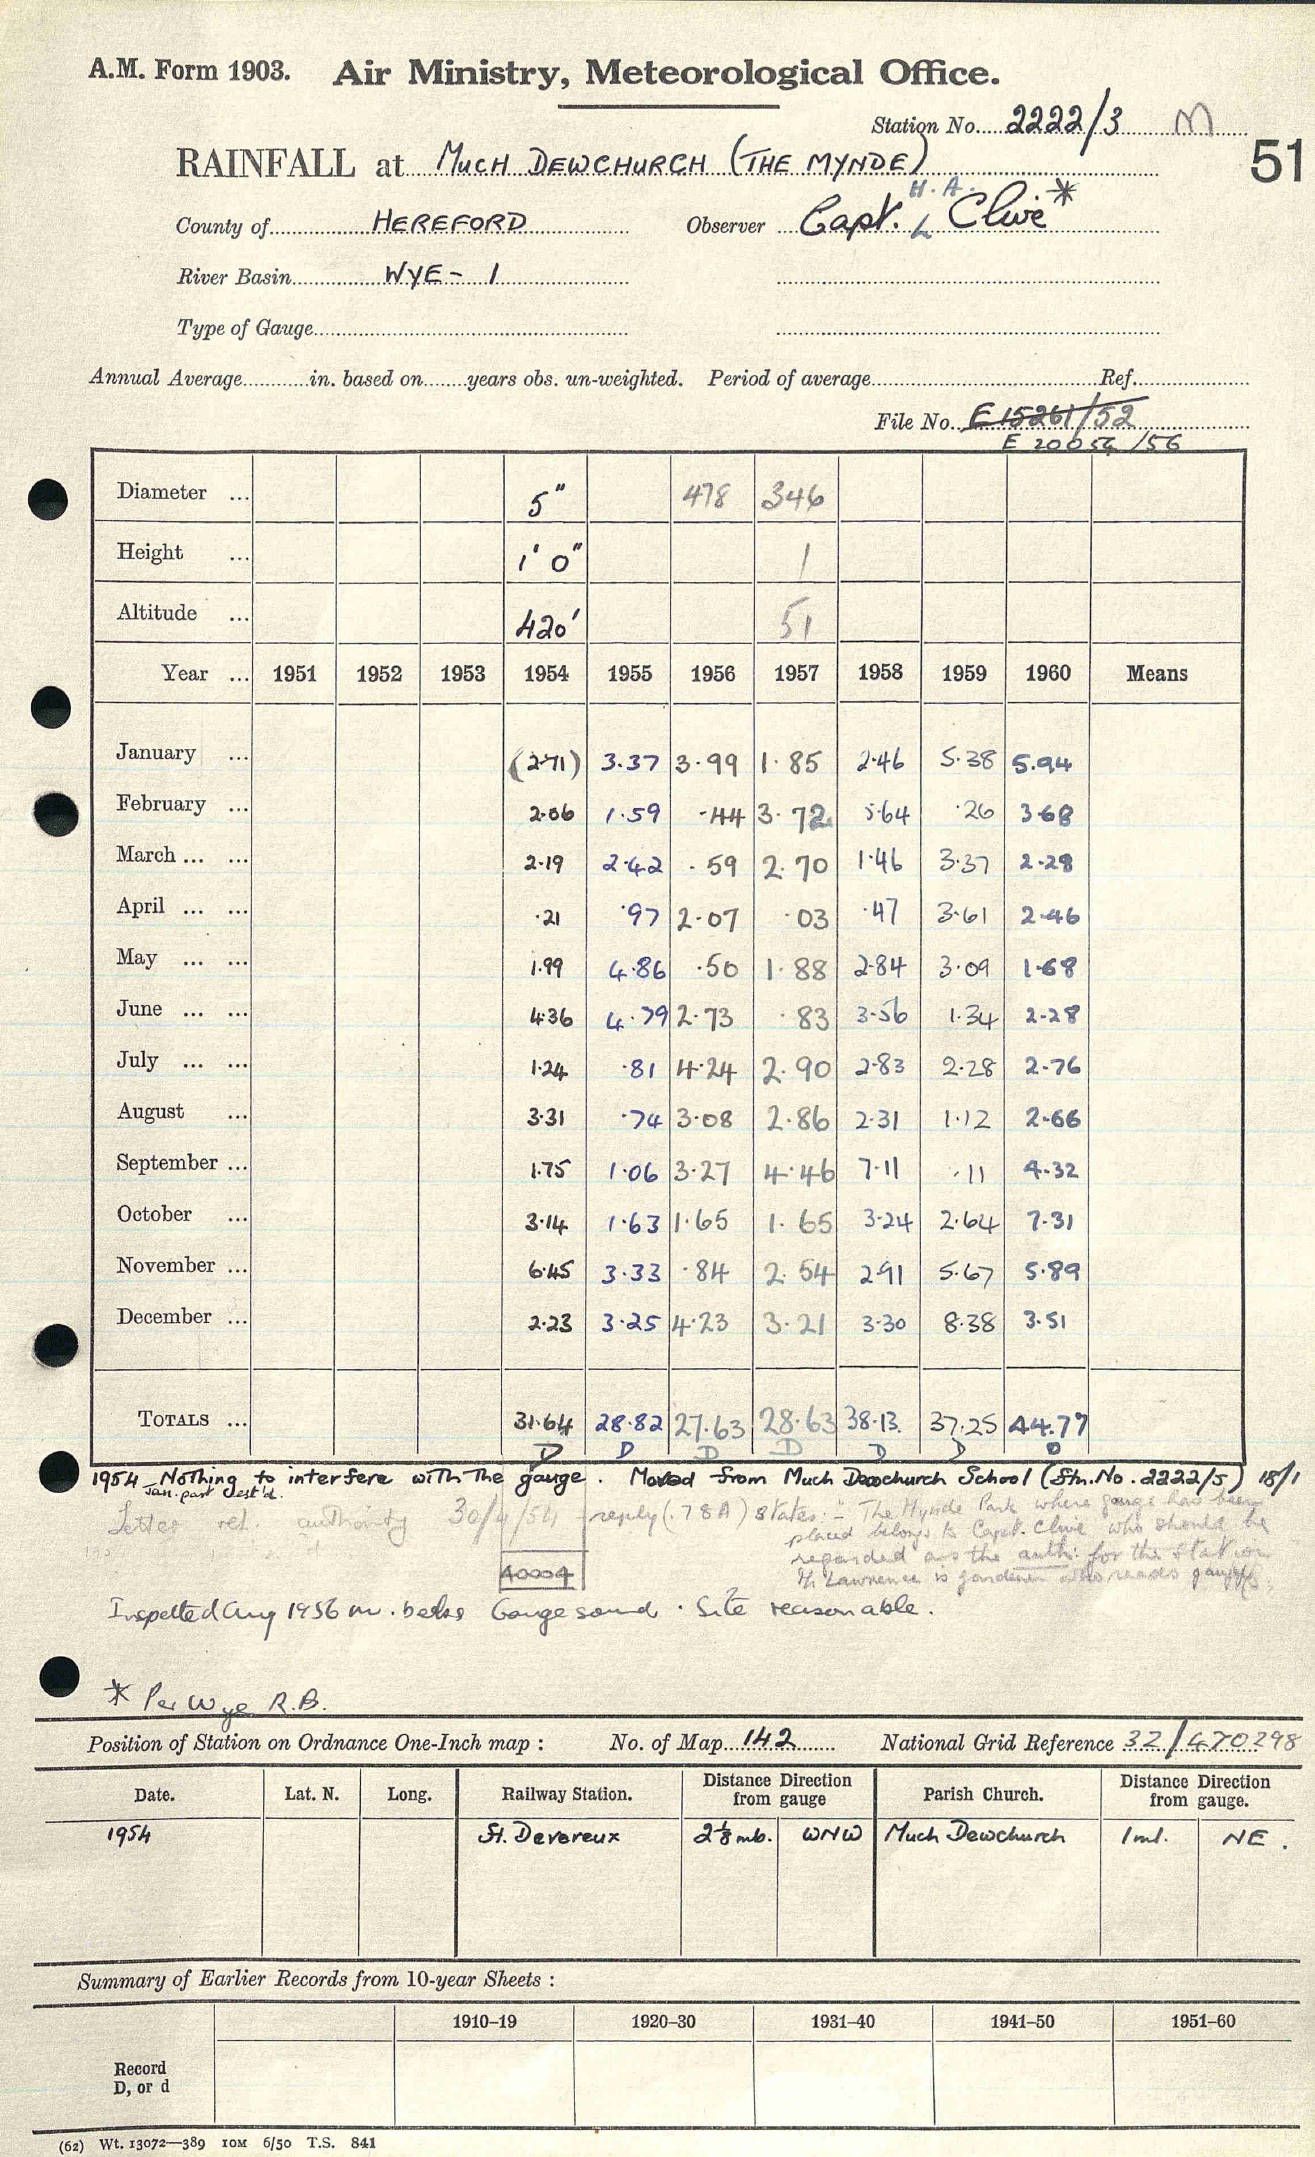 A.M. Form 1903. Air Ministry, Meteorological Office.
Station No. 2222/3 M
51
RAINFALL at MUCH DEWCHURCH (THE MYNDE)
H. A.
County of HEREFORD Observer Capt. Clive *
River Basin WYE - 1
Type of Gauge
Annual Average in. based on years obs. un-weighted. Period of average Ref.
File No. E 15261/52
E 20054/56
Diameter ... 5" 478 346
Height ... 1' 0" 1
Altitude ... 420' 51
Year ... 1951 1952 1953 1954 1955 1956 1957 1958 1959 1960 Means
January ... (2.71) 3.37 3.99 1.85 2.46 5.38 5.94
February ... 2.06 1.59 .44 3.72 5.64 .26 3.68
March ... ... 2.19 2.42 .59 2.70 1.46 3.37 2.28
April ... ... .21 .97 2.07 .03 .47 3.61 2.46
May ... ... 1.99 4.86 .50 1.88 2.84 3.09 1.68
June ... ... 4.36 4.79 2.73 .83 3.56 1.34 2.28
July ... ... 1.24 .81 4.24 2.90 2.83 2.28 2.76
August ... 3.31 .74 3.08 2.86 2.31 1.12 2.66
September ... 1.75 1.06 3.27 4.46 7.11 .11 4.32
October ... 3.14 1.63 1.65 1.65 3.24 2.64 7.31
November ... 6.45 3.33 .84 2.54 2.91 5.67 5.89
December ... 2.23 3.25 4.23 3.21 3.30 8.38 3.51
TOTALS ... 31.64 28.82 27.63 28.63 38.13 37.25 44.77
D D D D D D D
1954 Nothing to interfere with the gauge. Moved from Much Dewchurch School (Stn. No. 2222/5) 18/1
Jan. part est'd.
Letter ret. authority 30/4/54 reply (.78A) states: - The Mynde Park where gauge has been
placed belongs to Capt. Clive who should be
regarded as the auth: for the station
Mr Lawrence is gardener who reads gauge.
A0004
Inspected Aug 1956 Gauge sound. Site reasonable.
* Per Wye R.B.
Position of Station on Ordnance One-Inch map : No. of Map 142 National Grid Reference 32/470298
Date. Lat. N. Long. Railway Station. Distance Direction from gauge Parish Church. Distance Direction from gauge.
1954 St. Devereux 2⅛ mls. WNW Much Dewchurch 1 ml. NE.
Summary of Earlier Records from 10-year Sheets :
1910–19 1920–30 1931–40 1941–50 1951–60
Record
D, or d
(62) Wt. 13072—389 10M 6/50 T.S. 841